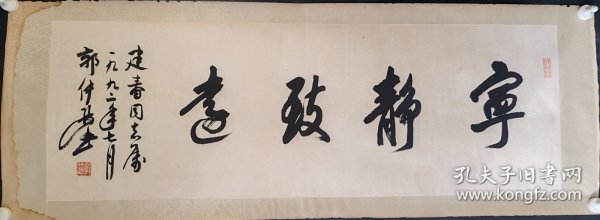 寧靜致遠
建春同志属
一九九二年七月
郭仲
孔夫子旧书网
www.kongfz.com